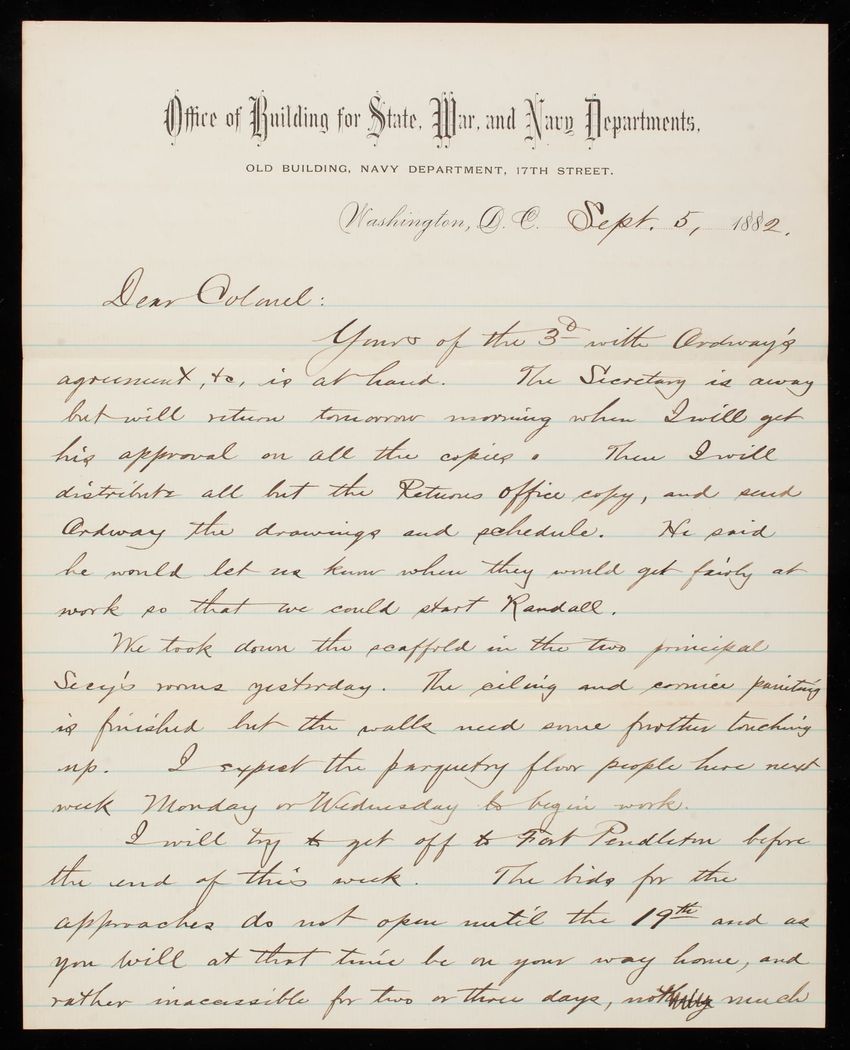 Office of Building for State, War, and Navy Departments,
OLD BUILDING, NAVY DEPARTMENT, 17TH STREET.
Washington, D. C. Sept. 5, 1882.
Dear Colonel:
Yours of the 3D with Ordway's
agreement, &c, is at hand. The Secretary is away
but will return tomorrow morning when I will get
his approval on all the copies. Then I will
distribute all but the Returns office copy, and send
Ordway the drawings and schedule. He said
he would let us know when they would get fairly at
work so that we could start Randall.
We took down the scaffold in the two principal
Secy's rooms yesterday. The ceiling and cornice painting
is finished but the walls need some further touching
up. I expect the parquetry floor people here next
week Monday or Wednesday to begin work.
I will try to get off to Fort Pendleton before
the end of this week. The bids for the
approaches do not open until the 19th and as
you will at that time be on your way home, and
rather inaccessible for two or three days, not much